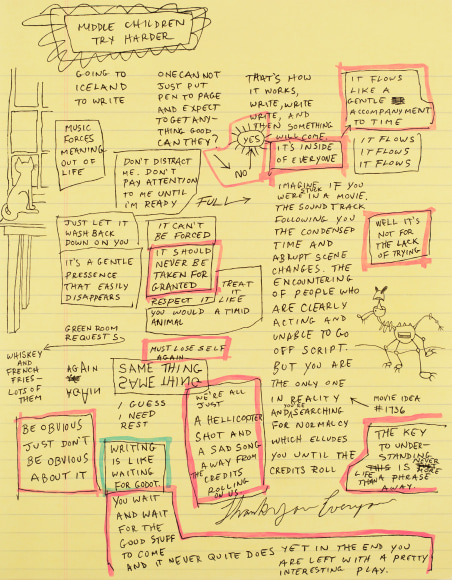 MIDDLE CHILDREN
TRY HARDER
GOING TO
ICELAND
TO WRITE
ONE CAN NOT
JUST PUT
PEN TO PAGE
AND EXPECT
TO GET ANY-
THING GOOD
CAN THEY?
THAT'S HOW
IT WORKS,
WRITE, WRITE
WRITE, AND
THEN SOMETHING
WILL COME.
YES
NO
IT'S INSIDE
OF EVERYONE
IT FLOWS
LIKE A
GENTLE
ACCOMPANYMENT
TO TIME
IT FLOWS?
IT FLOWS
IT FLOWS
MUSIC
FORCES
MEANING
OUT OF
LIFE
DON'T DISTRACT
ME. DON'T
PAY ATTENTION
TO ME UNTIL
I'M READY
FULL
JUST LET IT
WASH BACK
DOWN ON YOU
IT CAN'T
BE FORCED
IT'S A GENTLE
PRESSENCE
THAT EASILY
DISAPPEARS
IT SHOULD
NEVER BE
TAKEN FOR
GRANTED
TREAT
IT
RESPECT IT LIKE
YOU WOULD A TIMID
ANIMAL
IMAGINE IF YOU
WERE STUCK IN A MOVIE.
THE SOUND TRACK
FOLLOWING YOU
THE CONDENSED
TIME AND
ABRUPT SCENE
CHANGES. THE
ENCOUNTERING
OF PEOPLE WHO
ARE CLEARLY
ACTING AND
UNABLE TO GO
OFF SCRIPT.
BUT YOU ARE
THE ONLY ONE
IN REALITY
AND YOU'RE SEARCHING
FOR NORMALCY
WHICH ELLUDES
YOU UNTIL THE
CREDITS ROLL
WELL IT'S
NOT FOR
THE LACK
OF TRYING
GREEN ROOM
REQUESTS
WHISKEY
AND
FRENCH
FRIES—
LOTS OF
THEM
AGAIN
AGAIN
MUST LOSE SELF
AGAIN
SAME THING
SAME THING
I GUESS
I NEED
REST
WE'RE ALL
JUST
A HELLICOPTER
SHOT AND
A SAD SONG
AWAY FROM
THE CREDITS
ROLLING
ON US.
MOVIE IDEA
#1736
BE OBVIOUS
JUST DON'T
BE OBVIOUS
ABOUT IT
WRITING
IS LIKE
WAITING
FOR GODOT.
THE KEY
TO UNDER-
STANDING
LIFE IS NEVER MORE
THAN A PHRASE
AWAY.
YOU WAIT
AND WAIT
FOR THE
GOOD STUFF
TO COME
AND IT NEVER QUITE DOES YET IN THE END YOU
ARE LEFT WITH A PRETTY
INTERESTING PLAY.
Thank you Everyone